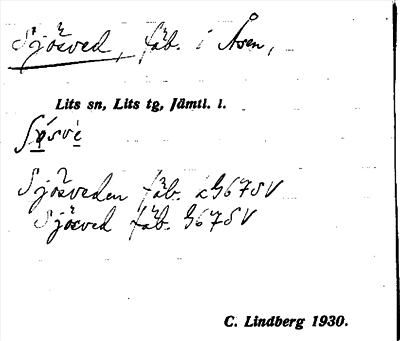 Sjösved, fäb. i Åsen,
Lits sn, Lits tg, Jämtl. l.
Sjösveden fäb. 2967SV
Sjösved fäb. 967SV
C. Lindberg 1930.